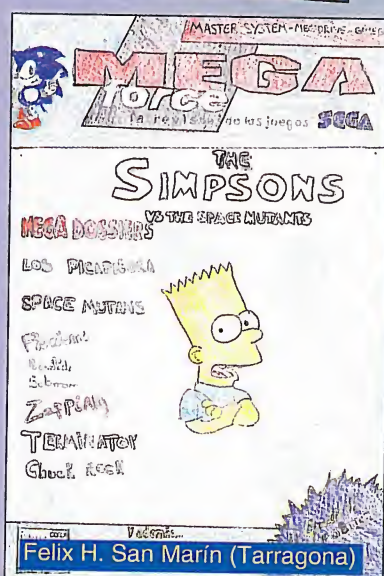 MASTER SYSTEM-MEGADRIVE-GAME
MEGA
force
la revista de los juegos SEGA
THE
SIMPSONS
VS THE SPACE MUTANTS
MEGA DOSSIERS
LOS PICAPIEDRA
SPACE MUTANS
Zapping
TERMINATOR
Chuck ROCK
Y además...
Felix H. San Marín (Tarragona)